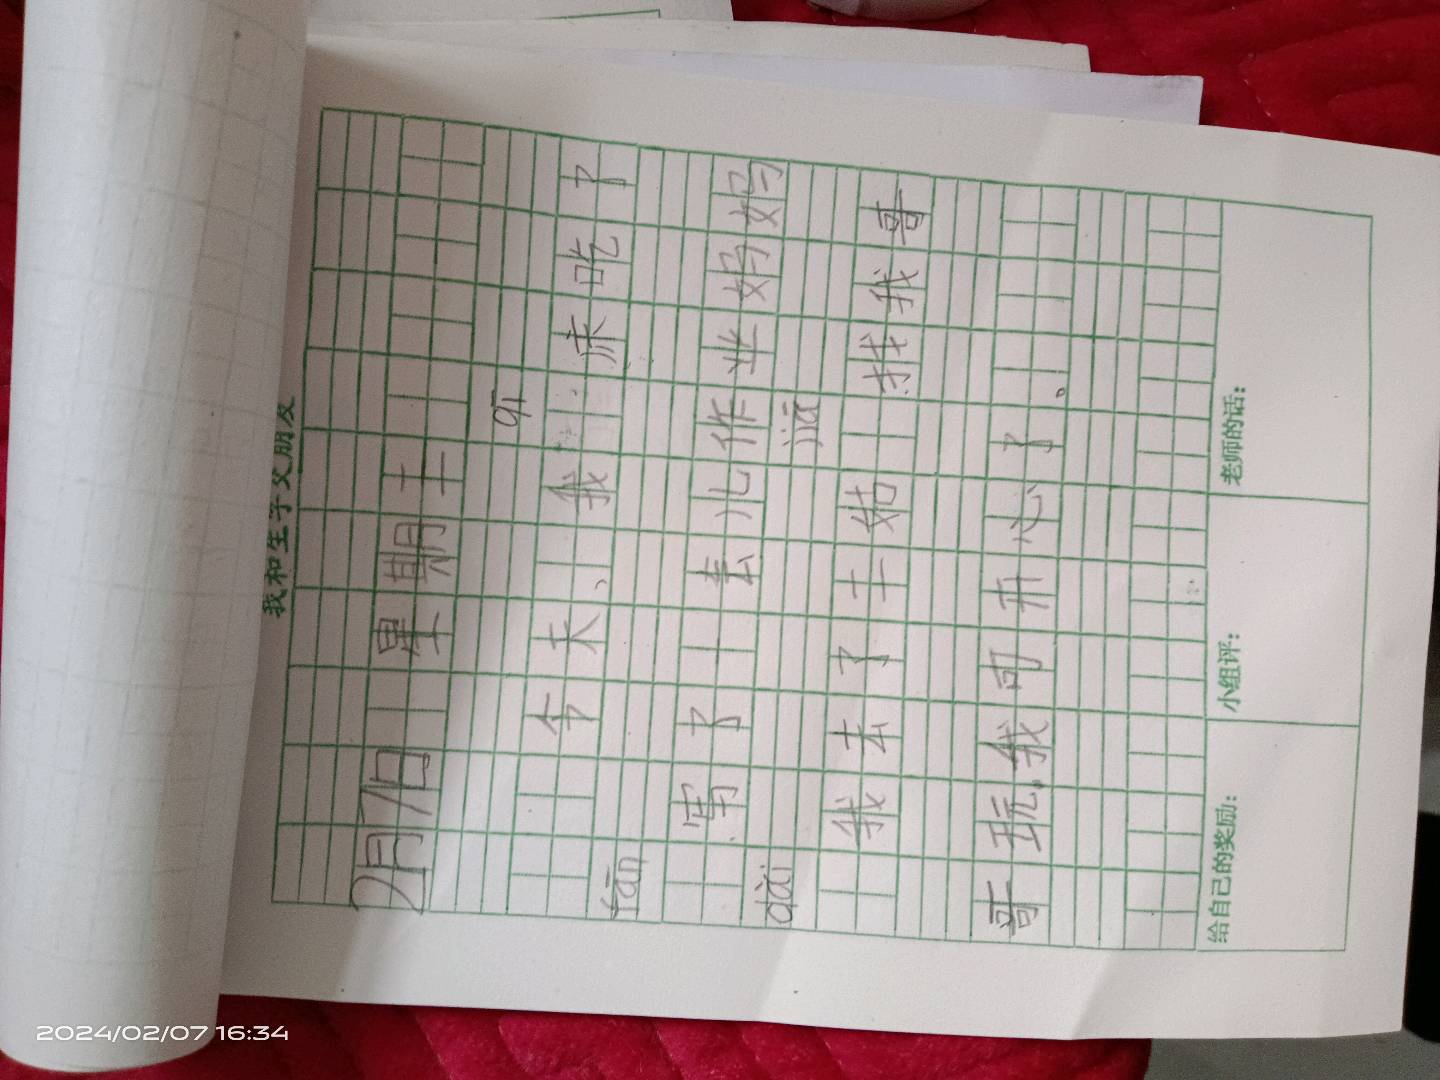 我和生字交朋友
2月7日 星期王
qǐ
今天，我 床吃了
fàn
写了一会儿作业妈妈
dài jiā
我去了王姑 找我哥
哥玩。我可开心了。
给自己的奖励： 小组评： 老师的话：
2024/02/07 16:34